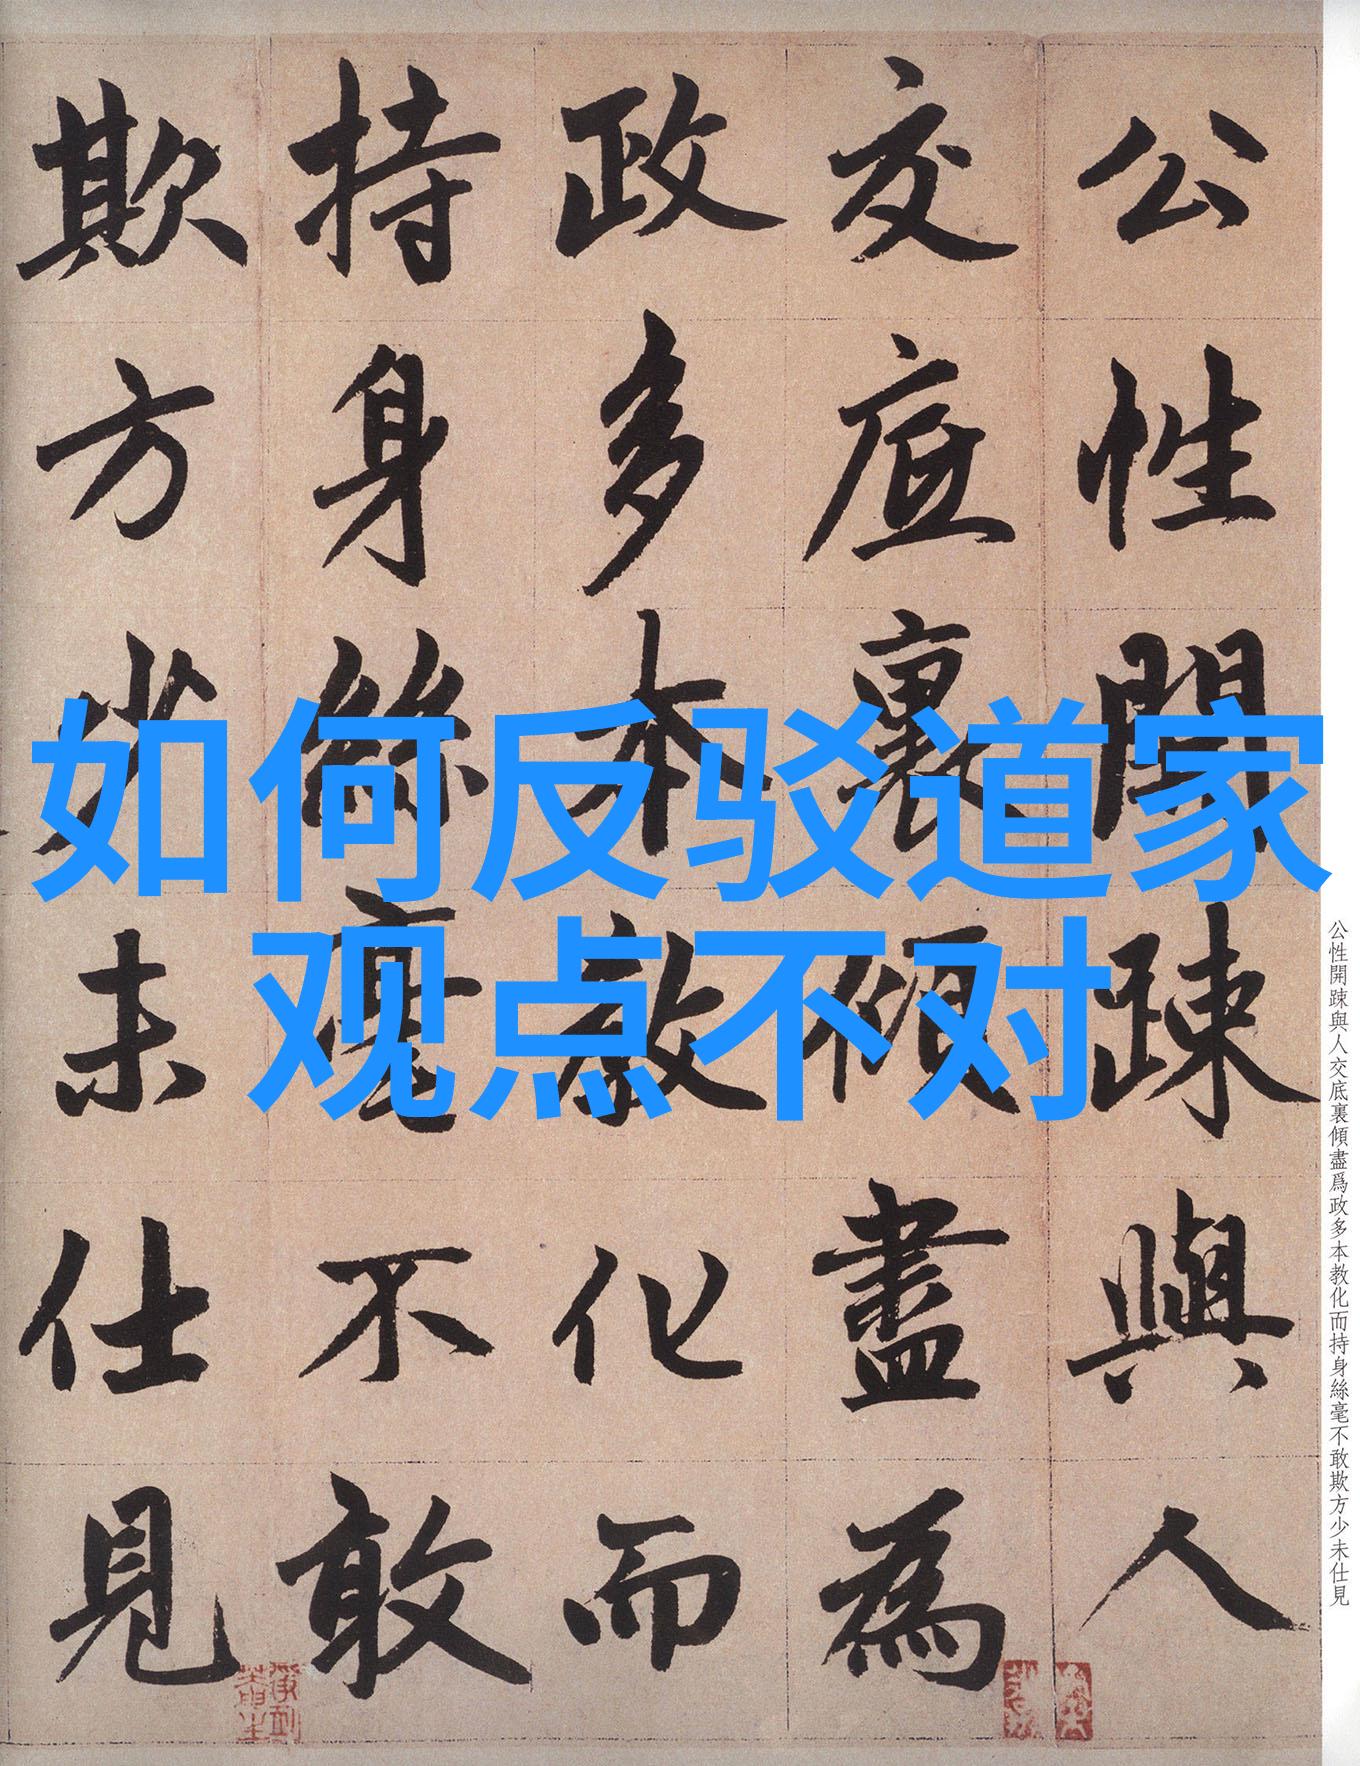 公性開踈與人
交底裏傾盡為
政多本教化而
持身絲毫不敢
欺方少未仕見
如何反驳道家
观点不对
公性開踈與人交底裏傾盡爲政多本教化而持身絲毫不敢欺方少未仕見